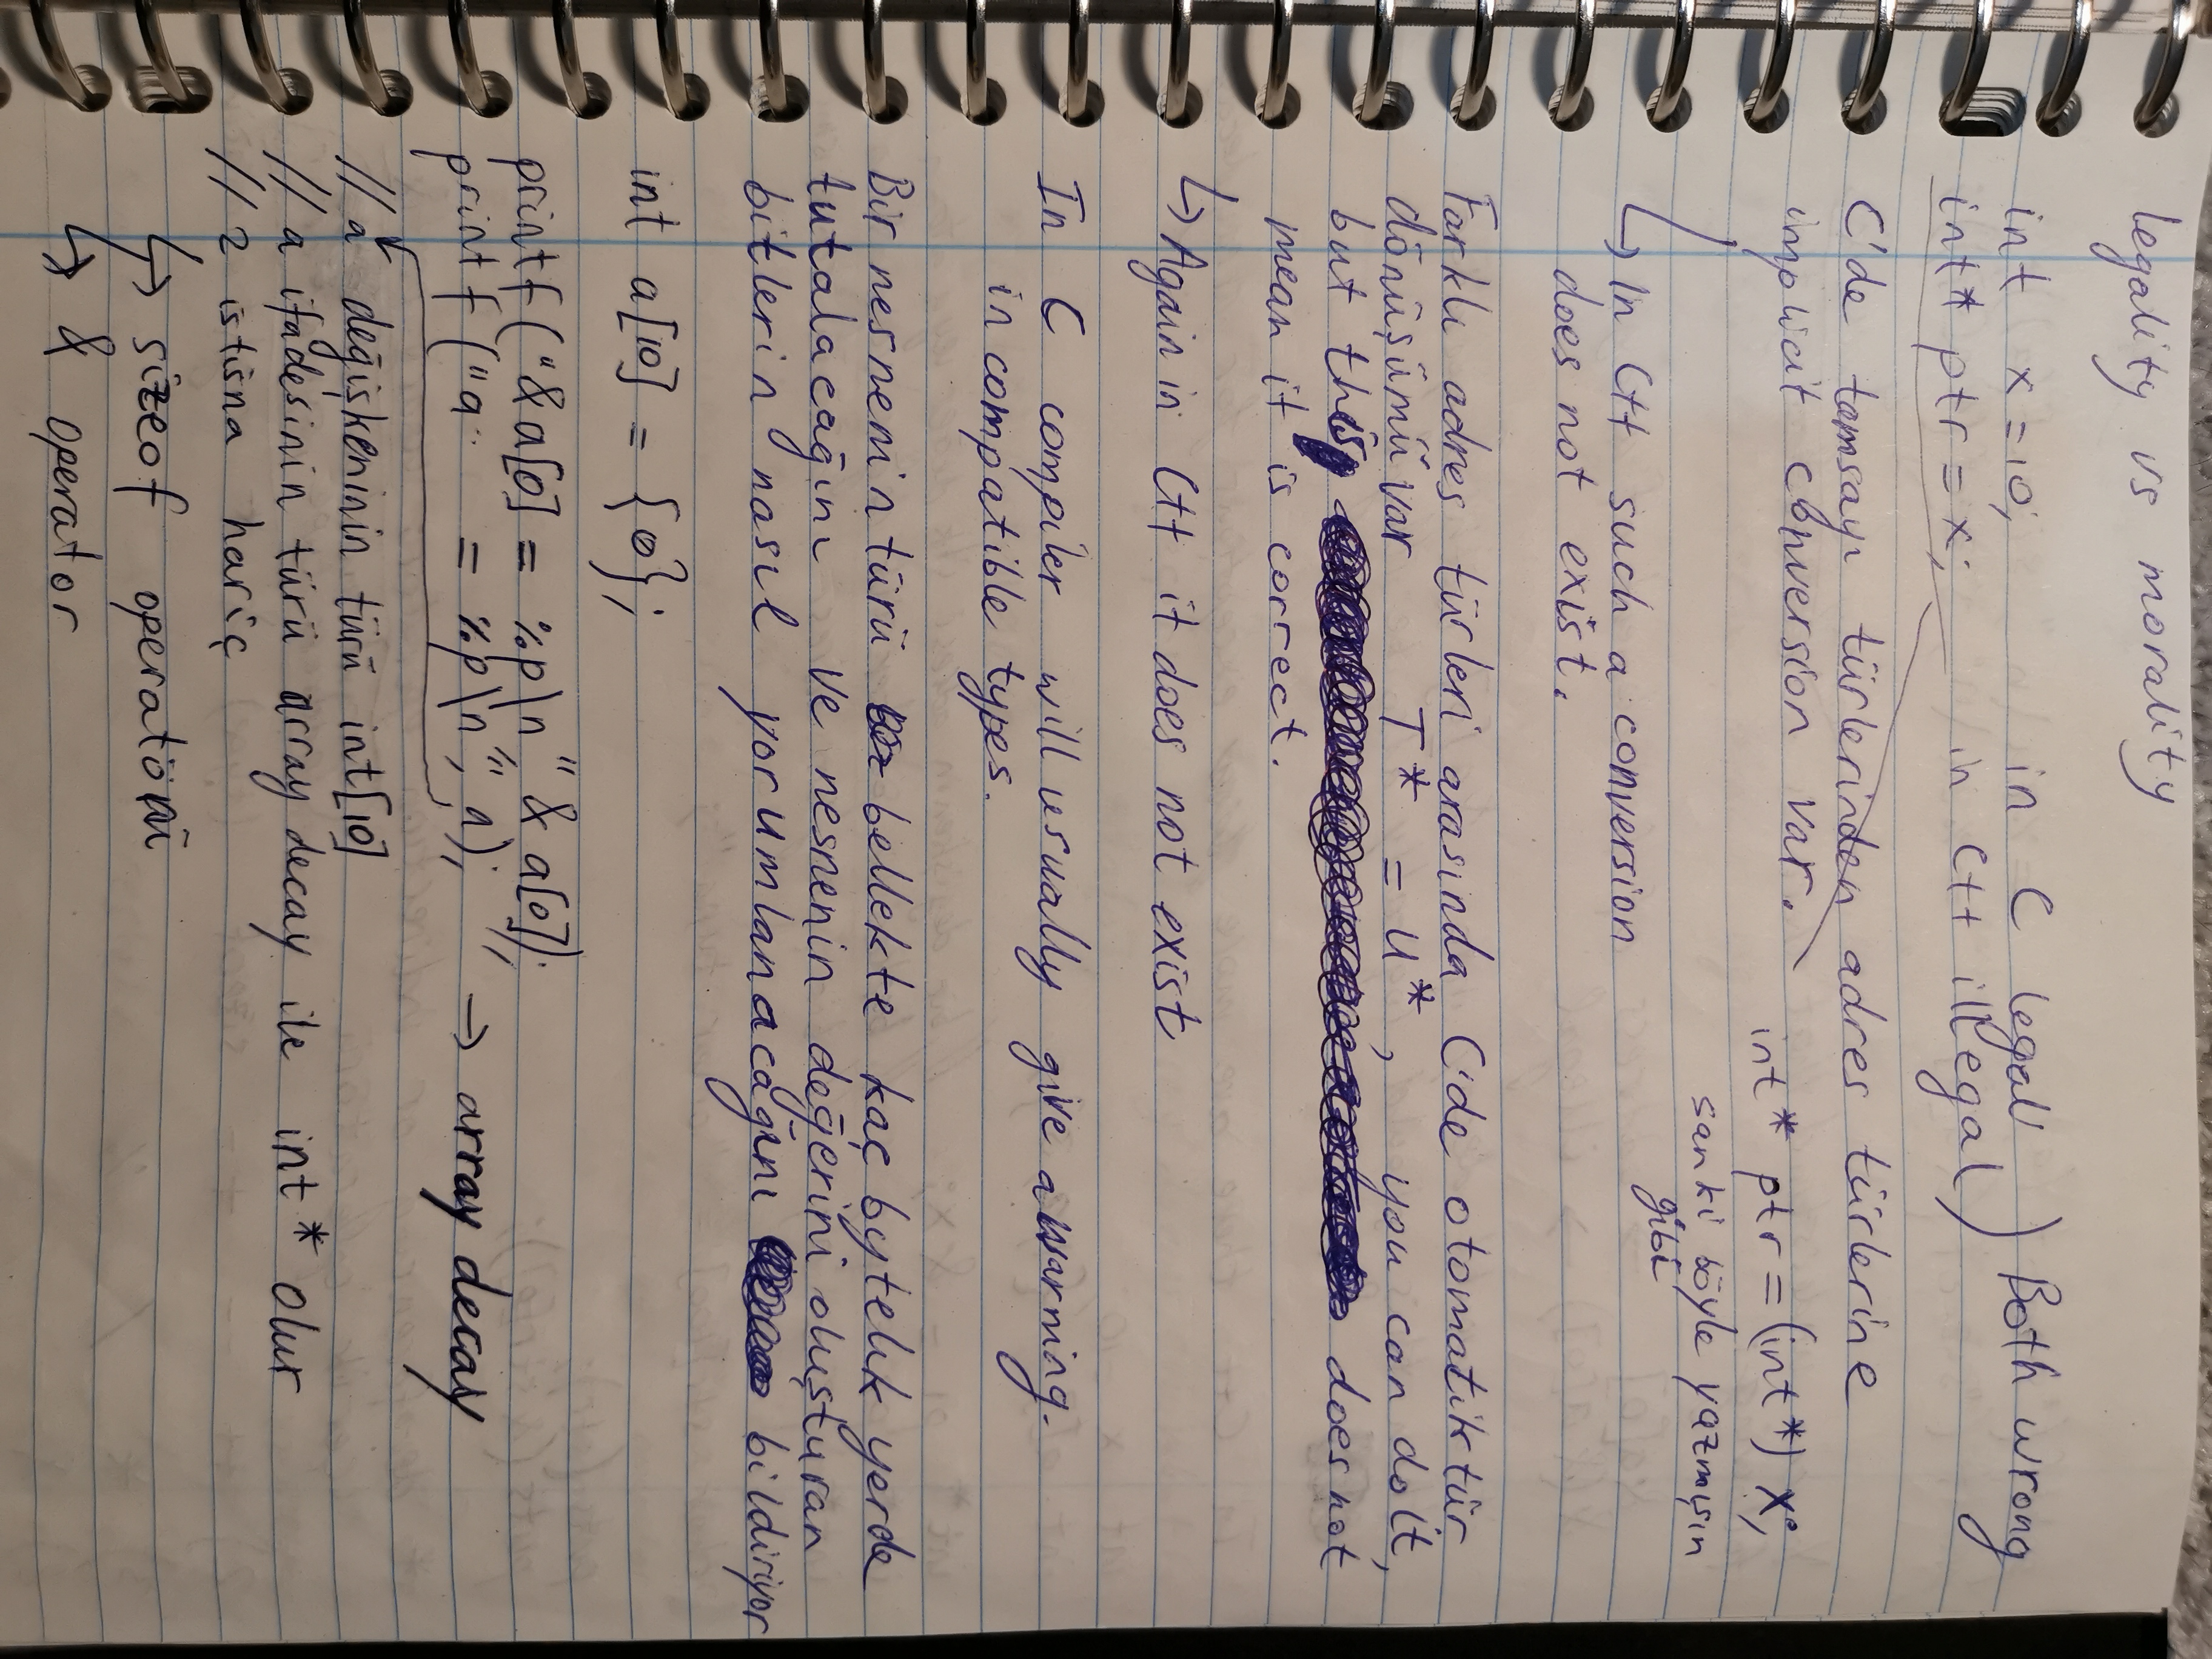 legality vs morality
int x = 10; in C legal ) Both wrong
int* ptr = x; in C++ illegal
C'de tamsayı türlerinden adres türlerine
implicit conversion var.
int* ptr = (int*) x;
sanki böyle yazmışın
gibi
↳ In C++ such a conversion
does not exist.
Farklı adres türleri arasında C'de otomatik tür
dönüşümü var T* = U* , you can do it,
but this does not
mean it is correct.
↳ Again in C++ it does not exist
In C compiler will usually give a warning.
incompatible types.
Bir nesnenin türü bellekte kaç bytelık yerde
tutalacağını ve nesnenin değerini oluşturan
bitlerin nasıl yorumlanacağını bildiriyor
int a[10] = {0};
printf("&a[0] = %p\n", &a[0]);
printf("a = %p\n", a); → array decay
// a değişkeninin türü int[10]
// a ifadesinin türü array decay ile int* olur
// 2 istisna hariç
↳ sizeof operatörü
↳ & operator